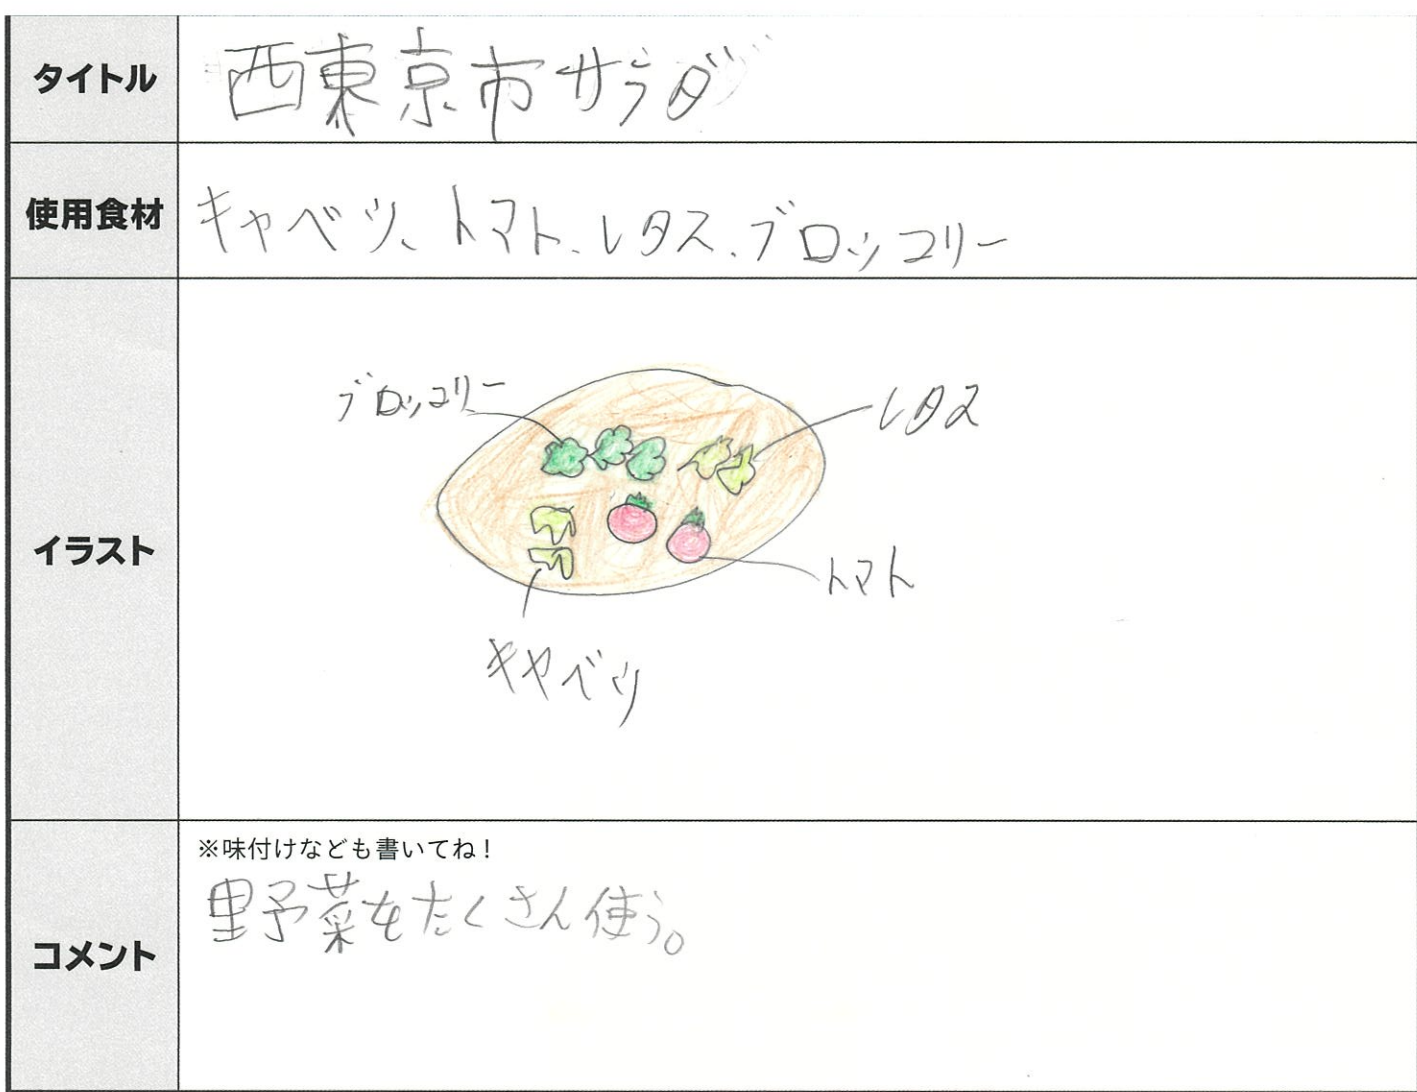 タイトル
西東京市サラダ
使用食材
キャベツ、トマト、レタス、ブロッコリー
イラスト
ブロッコリー
レタス
トマト
キャベツ
コメント
※味付けなども書いてね!
野菜をたくさん使う。